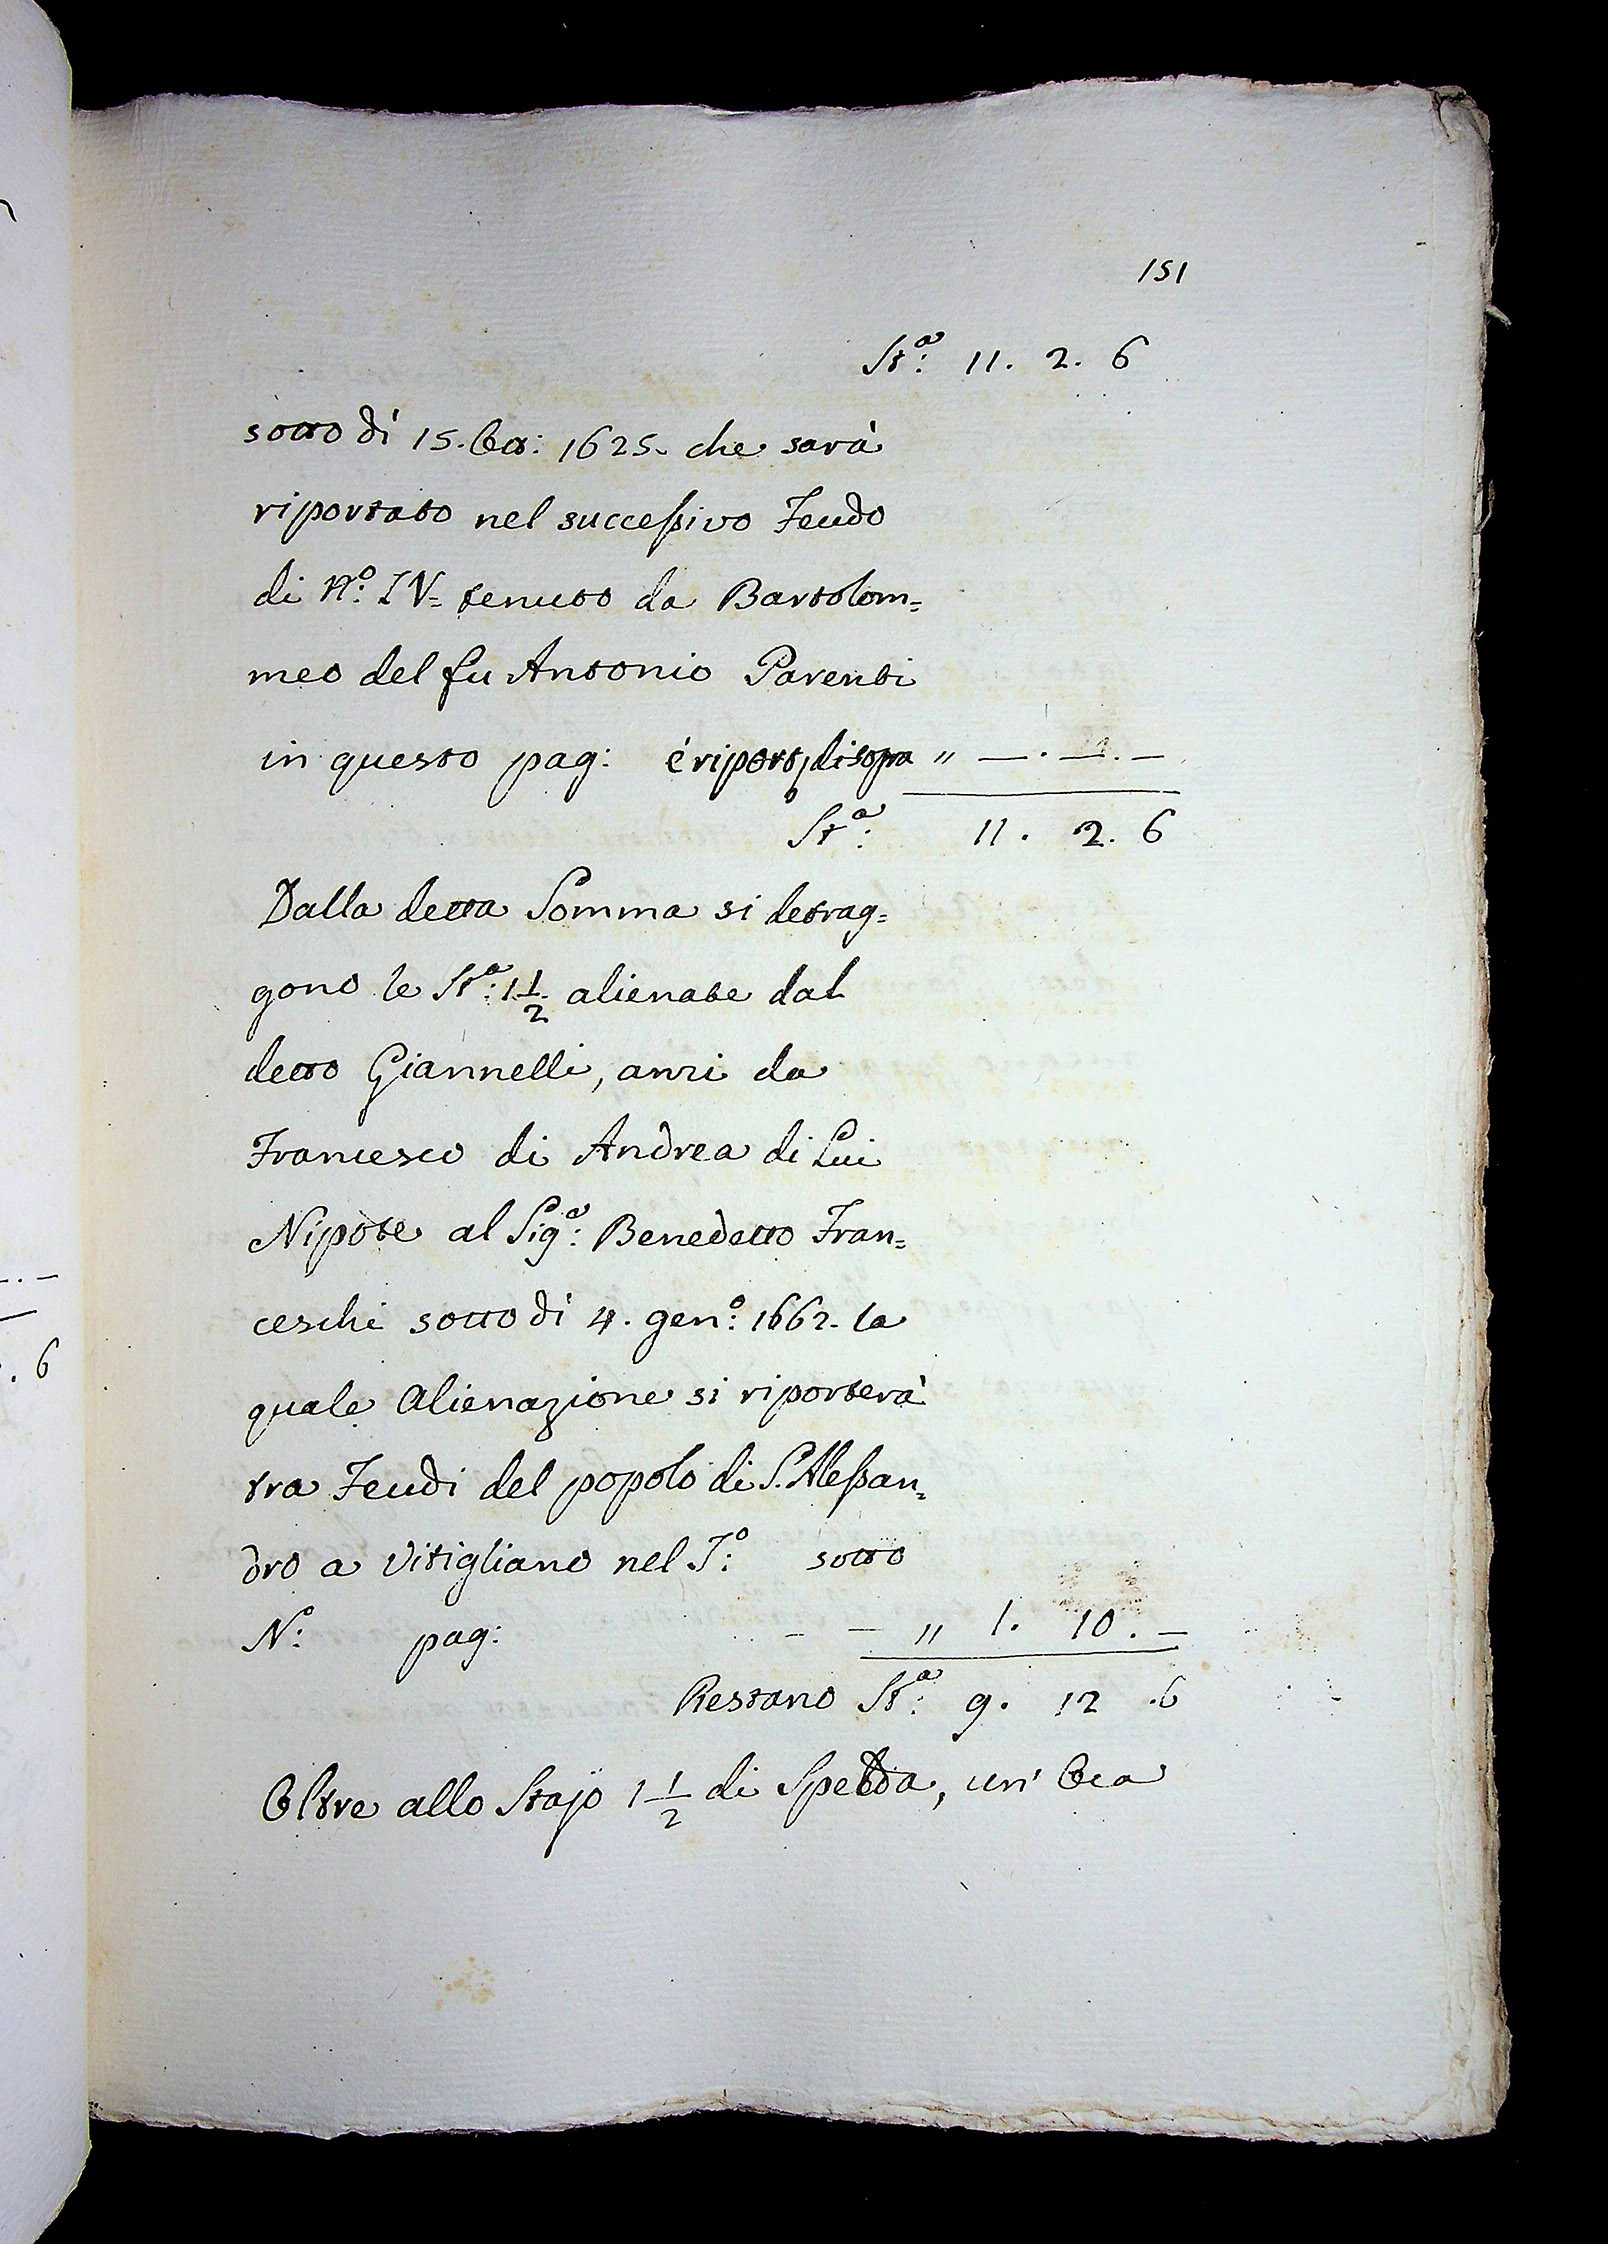 151
St.ª: 11. 2. 6
sotto dì 15. Ott: 1625. che sarà
riportato nel successivo Feudo
di N.º: IV= tenuto da Bartolom=
meo del fu Antonio Parenti
in questo pag: è riportº di sopra " —. —. —
St.ª: 11. 2. 6
Dalla detta Somma si detrag=
gono le St.ª: 1 1/2 alienate dal
detto Giannelli, anzi da
Francesco di Andrea di Lui
Nipote al Sig.e: Benedetto Fran=
ceschi sotto dì 4. gen.º: 1662. la
quale Alienazione si riporterà
tra Feudi del popolo di S. Alessan=
dro a Vitigliano nel T.º: sotto
N.º: pag: - - " 1. 10. —
Restano St.ª: 9. 12 .6
Oltre allo Stajo 1 1/2 di Spelda, un' Oca
6